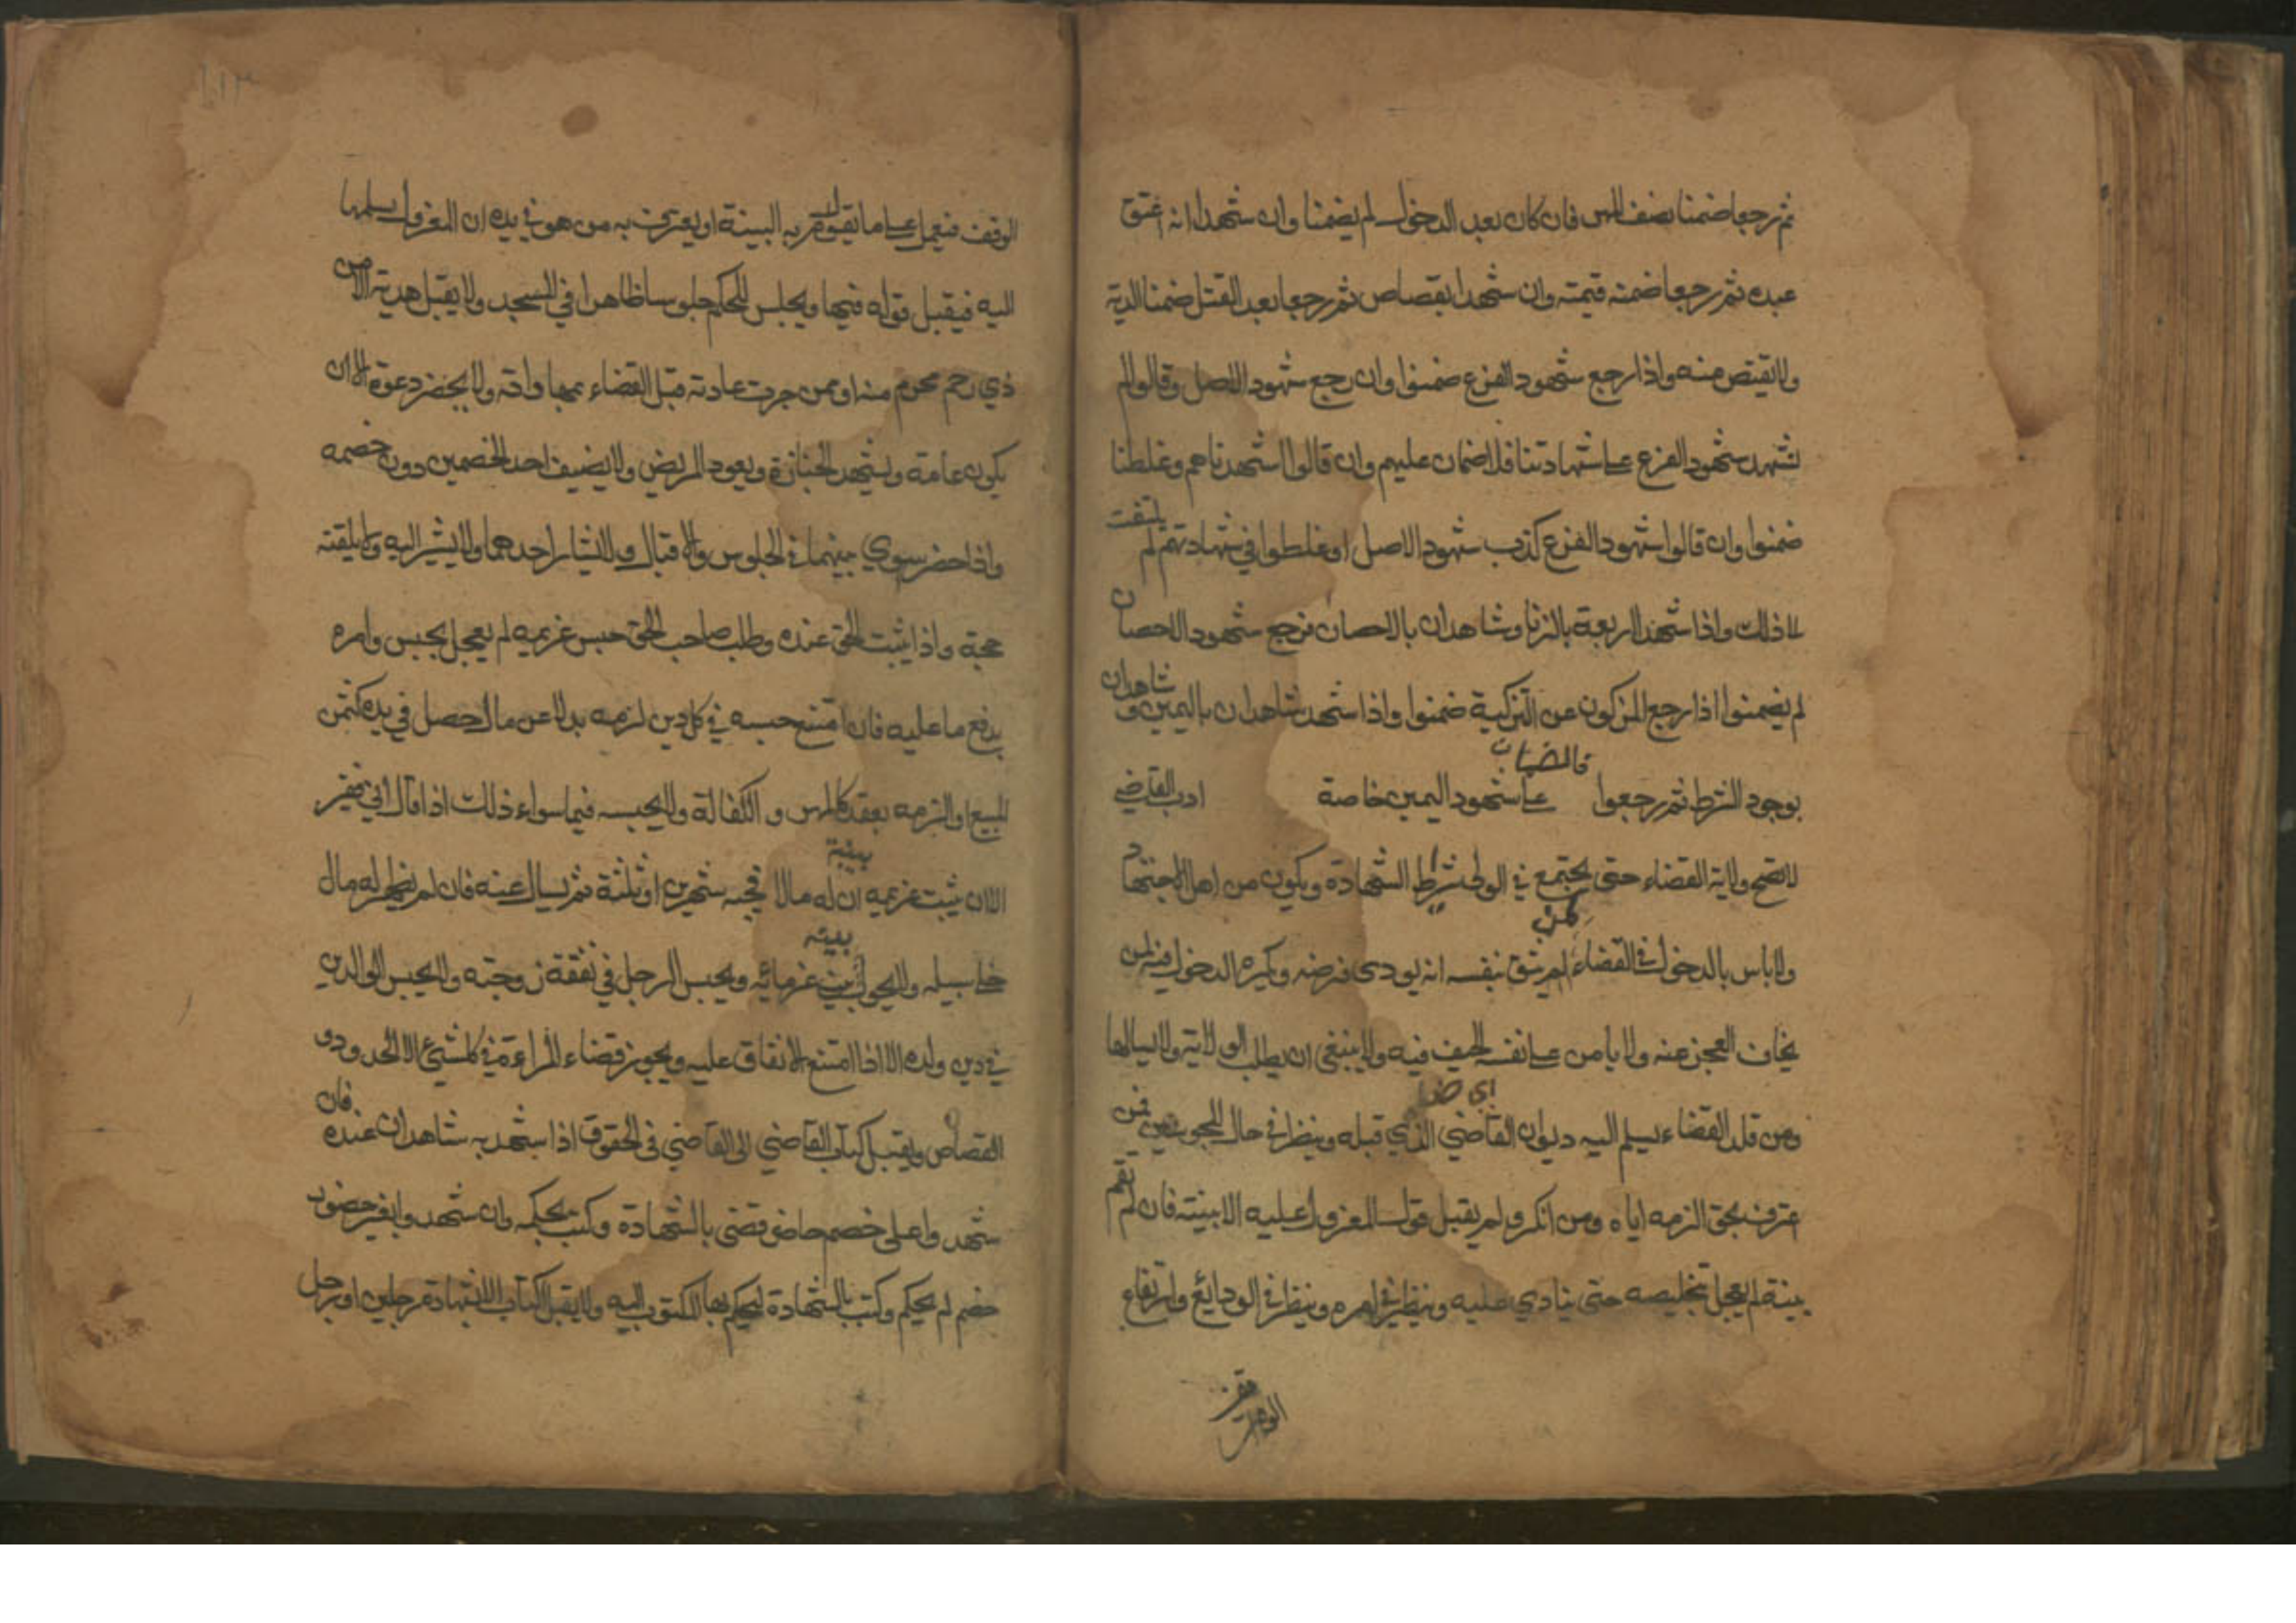 ثم رجعا ضمنا نصف المهر فان كان بعد الدخول لم يضمنا وان شهدا انه اعتق
عبده ثم رجعا ضمنه قيمته وان شهدا بقصاص ثم رجعا بعد القتل ضمنا الدية
ولا يقتص منه واذا رجع شهود الفرع ضمنوا وان رجع شهود الاصل وقالوا لم
نشهد شهود الفرع على شهادتنا فلا ضمان عليهم وان قالوا اشهدناهم وغلطنا
ضمنوا وان قالوا شهود الفرع كذب شهود الاصل او غلطوا في شهادتهم لم يلتفت
الا ذلك واذا شهد اربعة بالزنا وشاهدان بالاحصان فرجع شهود الاحصان
لم يضمنوا اذا رجع المزكون عن التزكية ضمنوا واذا شهد شاهدان باليمين وشاهدان
بوجود الشرط ثم رجعوا فالضمان على شهود اليمين خاصة ادب القاضي
لا تصح ولاية القضاء حتى يجتمع في المولى شرائط الشهادة ويكون من اهل الاجتهاد
ولا باس بالدخول في القضاء لمن يثق بنفسه انه يودى فرضه ويكره الدخول فيه لمن
يخاف العجز عنه ولا يامن على نفسه الحيف فيه ولا ينبغي ان يطلب الولاية ولا يسالها
ومن قلد القضاء يسلم اليه ديوان القاضي الذي قبله وينظر في حال المحبوسين فمن
اعترف بحق الزمه اياه ومن انكر ولم يقبل قول المعزول عليه الا ببينة فان لم تقم
بينة لم يعجل بتخليصه حتى ينادي عليه وينظر في امره وينظر في الودايع وارتفاع
الوقف
الوقف فيعمل على ما تقوم به البينة او يعترف به من هو في يده ان المعزول سلمها
اليه فيقبل قوله فيها ويجلس للحكم جلوسا ظاهرا في المسجد ولا يقبل هدية الا من
ذي رحم محرم منه او ممن جرت عادته قبل القضاء بمهاداته ولا يحضر دعوة الا ان
يكون عامة ويشهد الجنازة ويعود المريض ولا يضيف احد الخصمين دون خصمه
واذا حضر سوى بينهما في الجلوس والاقبال ولا يشار احدهما ولا يشير اليه ولا يلقنه
حجة واذا ثبت الحق عنده وطلب صاحب الحق حبس غريمه لم يعجل بحبس وامره
بدفع ما عليه فان امتنع حبسه في كل دين لزمه بدلا عن مال حصل في يده كثمن
المبيع او التزمه بعقد كالمهر و الكفالة ولا يحبسه فيما سواء ذلك اذا قال اني فقير
الا ان يثبت غريمه بينة ان له مالا فيحبسه شهرين او ثلثة ثم يسال عنه فان لم يظهر له مال
خلى سبيله ولا يحول بينه غرمائه ويحبس الرجل في نفقة زوجته ولا يحبس الوالدين
في دين ولده الا اذا امتنع الانفاق عليه ويجوز قضاء المراءة في كل شيء الا الحدود و
القصاص ويقبل كتاب القاضي الى القاضي في الحقوق اذا شهد به شاهدان عنده فان
شهدوا على خصم حاضر قضى بالشهادة وكتب بحكمه وان شهدوا بغير حضور
خصم لم يحكم وكتب بالشهادة ليحكم بها المكتوب اليه ولا يقبل الكتاب الا بشهادة رجلين او رجل